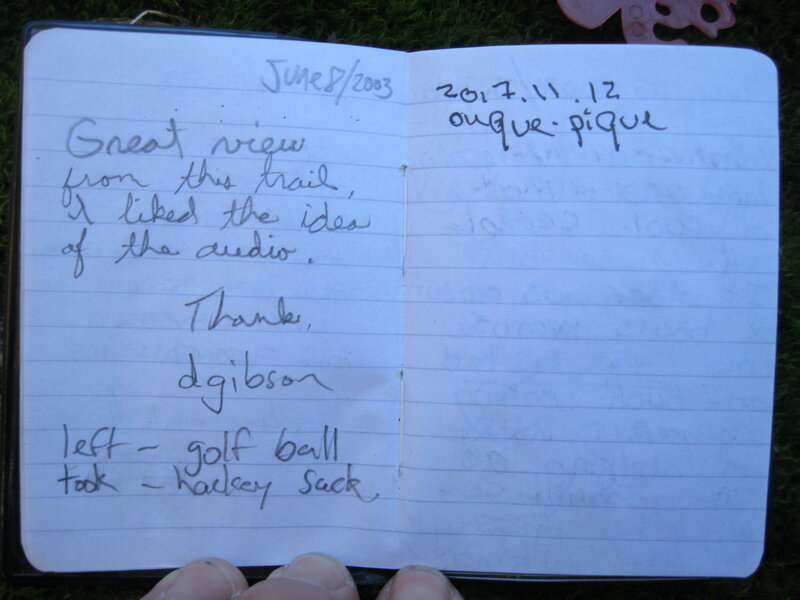 June 8/2003
Great view
from this trail,
I liked the idea
of the audio.
Thanks,
dgibson
left – golf ball
took – hackey sack.
2017.11.12
ouque-pique